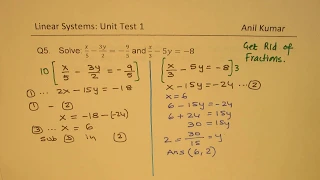 Linear Systems: Unit Test 1 Anil Kumar
Q5 Solve: x/5 - 3y/2 = -9/5 and x/3 - 5y = -8
Get Rid of
Fractions.
10 [ x/5 - 3y/2 = -9/5 ]
① ... 2x - 15y = -18
①-②
x = -18 - (-24)
③ ... x = 6
Sub ③ in ②
[ x/3 - 5y = -8 ] 3
x - 15y = -24 ... ②
x = 6
6 - 15y = -24
6 + 24 = 15y
30 = 15y
2 = 30/15 = y
Ans (6, 2)